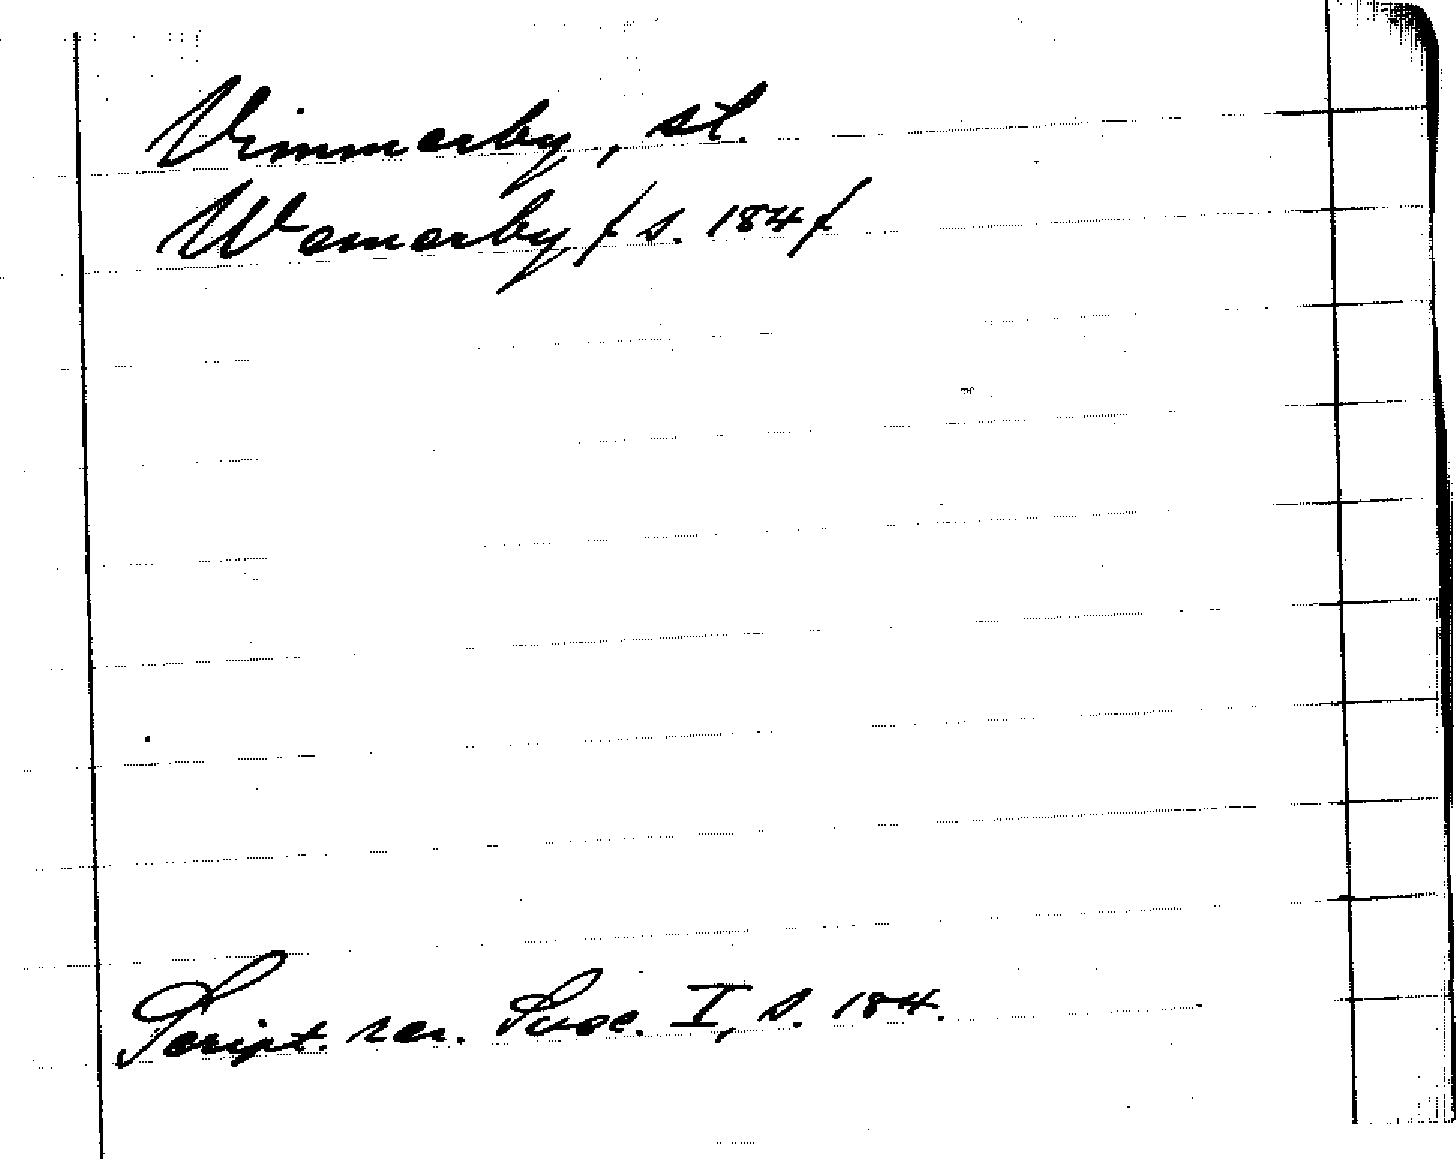 Vimmerby, st.
Wemerby / s. 184 /
Script. rer. Svec. I, s. 184.